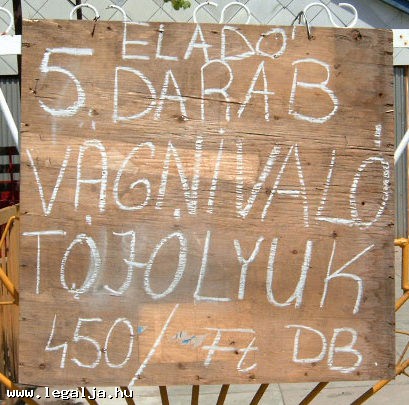 ELADÓ
5. DARAB
VÁGNIVALÓ
TOJOLYUK
450/ Ft DB.
www.legalja.hu